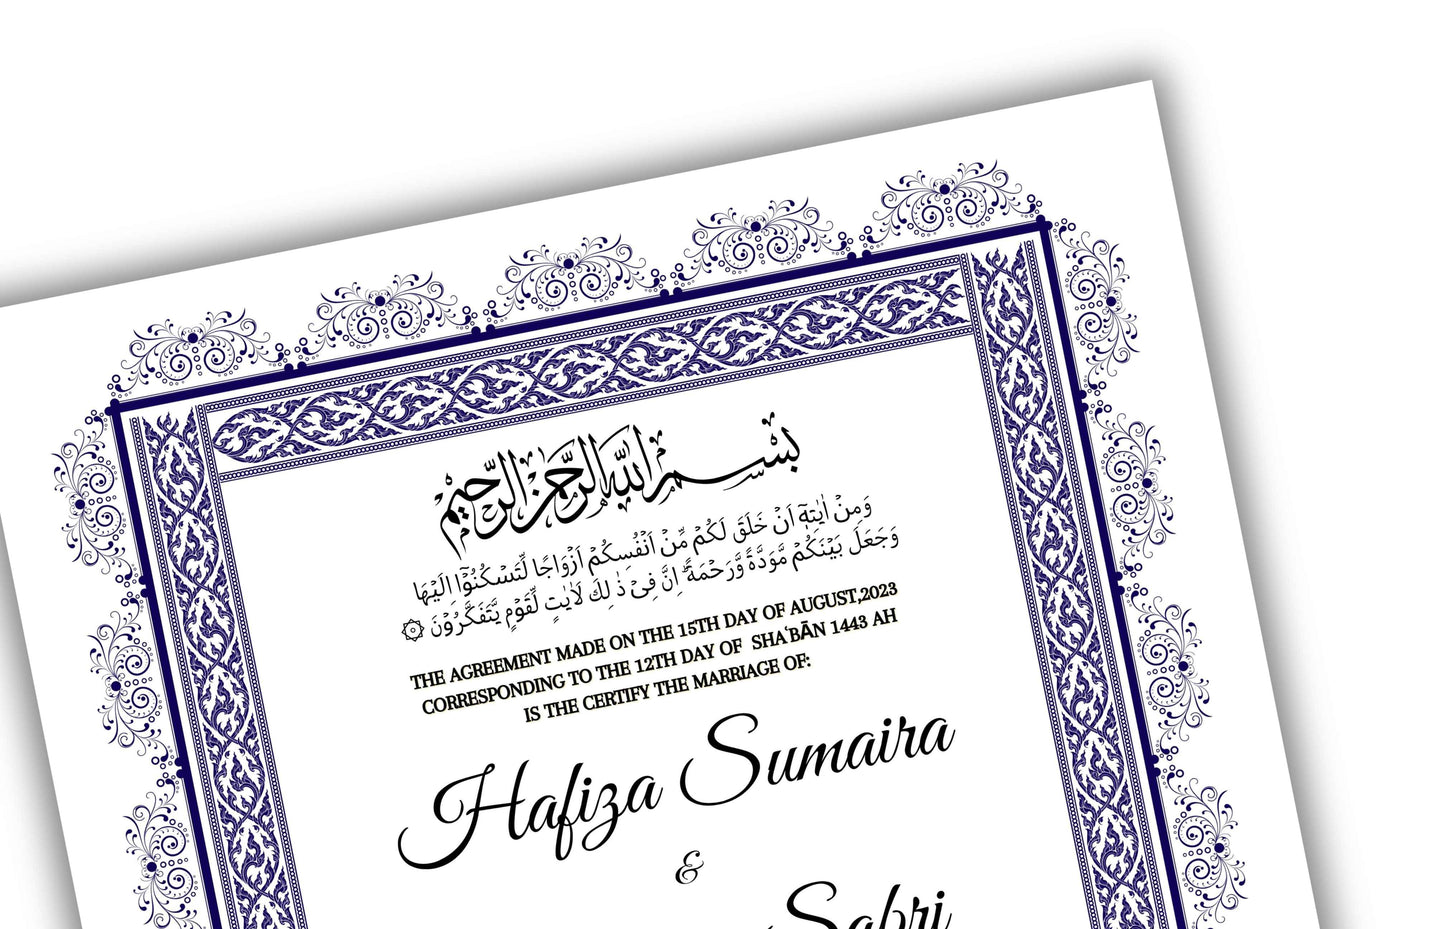 بسم الله الرحمن الرحيم
وَمِنْ اٰيٰتِهٖٓ اَنْ خَلَقَ لَكُمْ مِّنْ اَنْفُسِكُمْ اَزْوَاجًا لِّتَسْكُنُوْٓا اِلَيْهَا
وَجَعَلَ بَيْنَكُمْ مَّوَدَّةً وَّرَحْمَةً ؕ اِنَّ فِىْ ذٰ لِكَ لَاٰيٰتٍ لِّقَوْمٍ يَّتَفَكَّرُوْنَ ۞
THE AGREEMENT MADE ON THE 15TH DAY OF AUGUST,2023
CORRESPONDING TO THE 12TH DAY OF SHAʿBĀN 1443 AH
IS THE CERTIFY THE MARRIAGE OF:
Hafiza Sumaira
&
Sabri